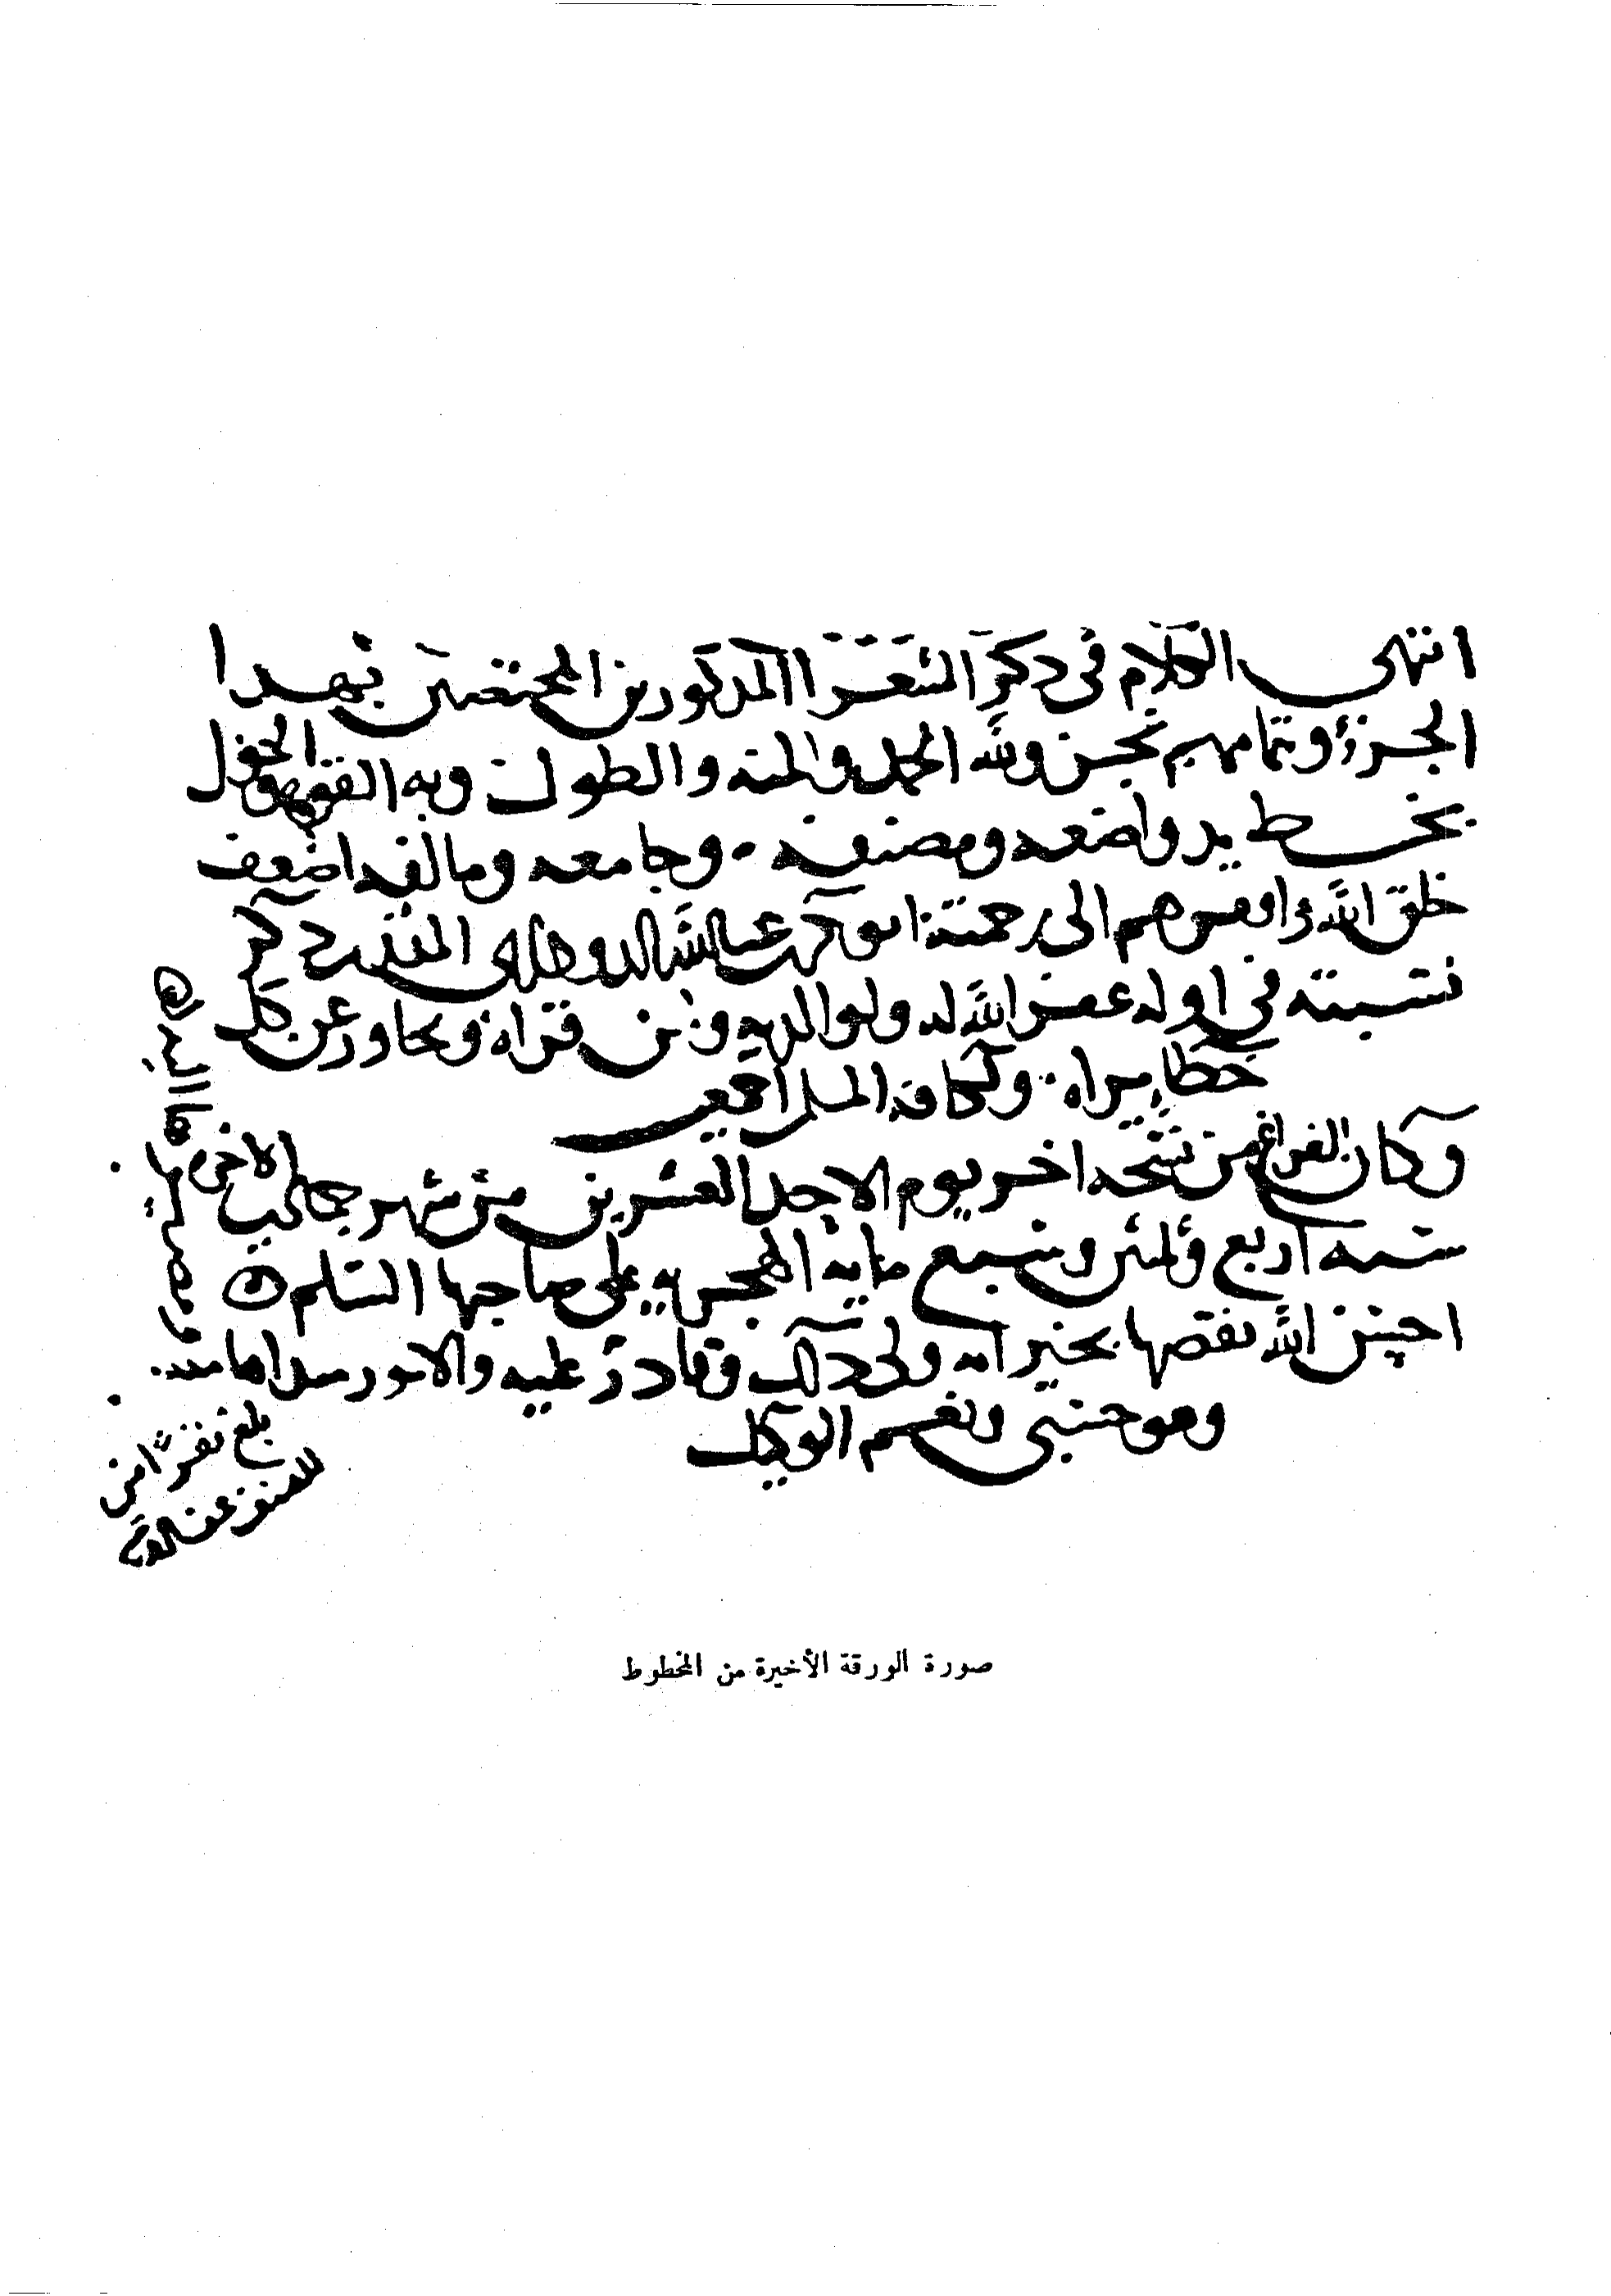 انتهى الكلام في ذكر الشعرا المذكورين المختصين بهذا
الجزؤ وتمامهم نجز ولله الحمد والمنه والطول وبه القوه والحول
بخط يد واضعه ومصنفه وجامعه ومالفه اضعف
خلق الله وافقرهم الى رحمته ابو بكر عبد الله
نسبته في اوله غفر الله له ولوالديه ومن قراه وتجاوز عن كل
خطا يراه ولكافة المسلمين اجمعين
وكان الفراغ من نسخه اخر يوم الاحد العشرين من شهر جمادى الاخر
سنه اربع وثلثين وسبع مايه الهجريه على صاحبها السلم
احسن الله نقصها بخير انه ولي ذلك وقادر عليه والامور
وهو حسبي ونعم الوكيل
بلغ
صورة الورقة الأخيرة من المخطوط